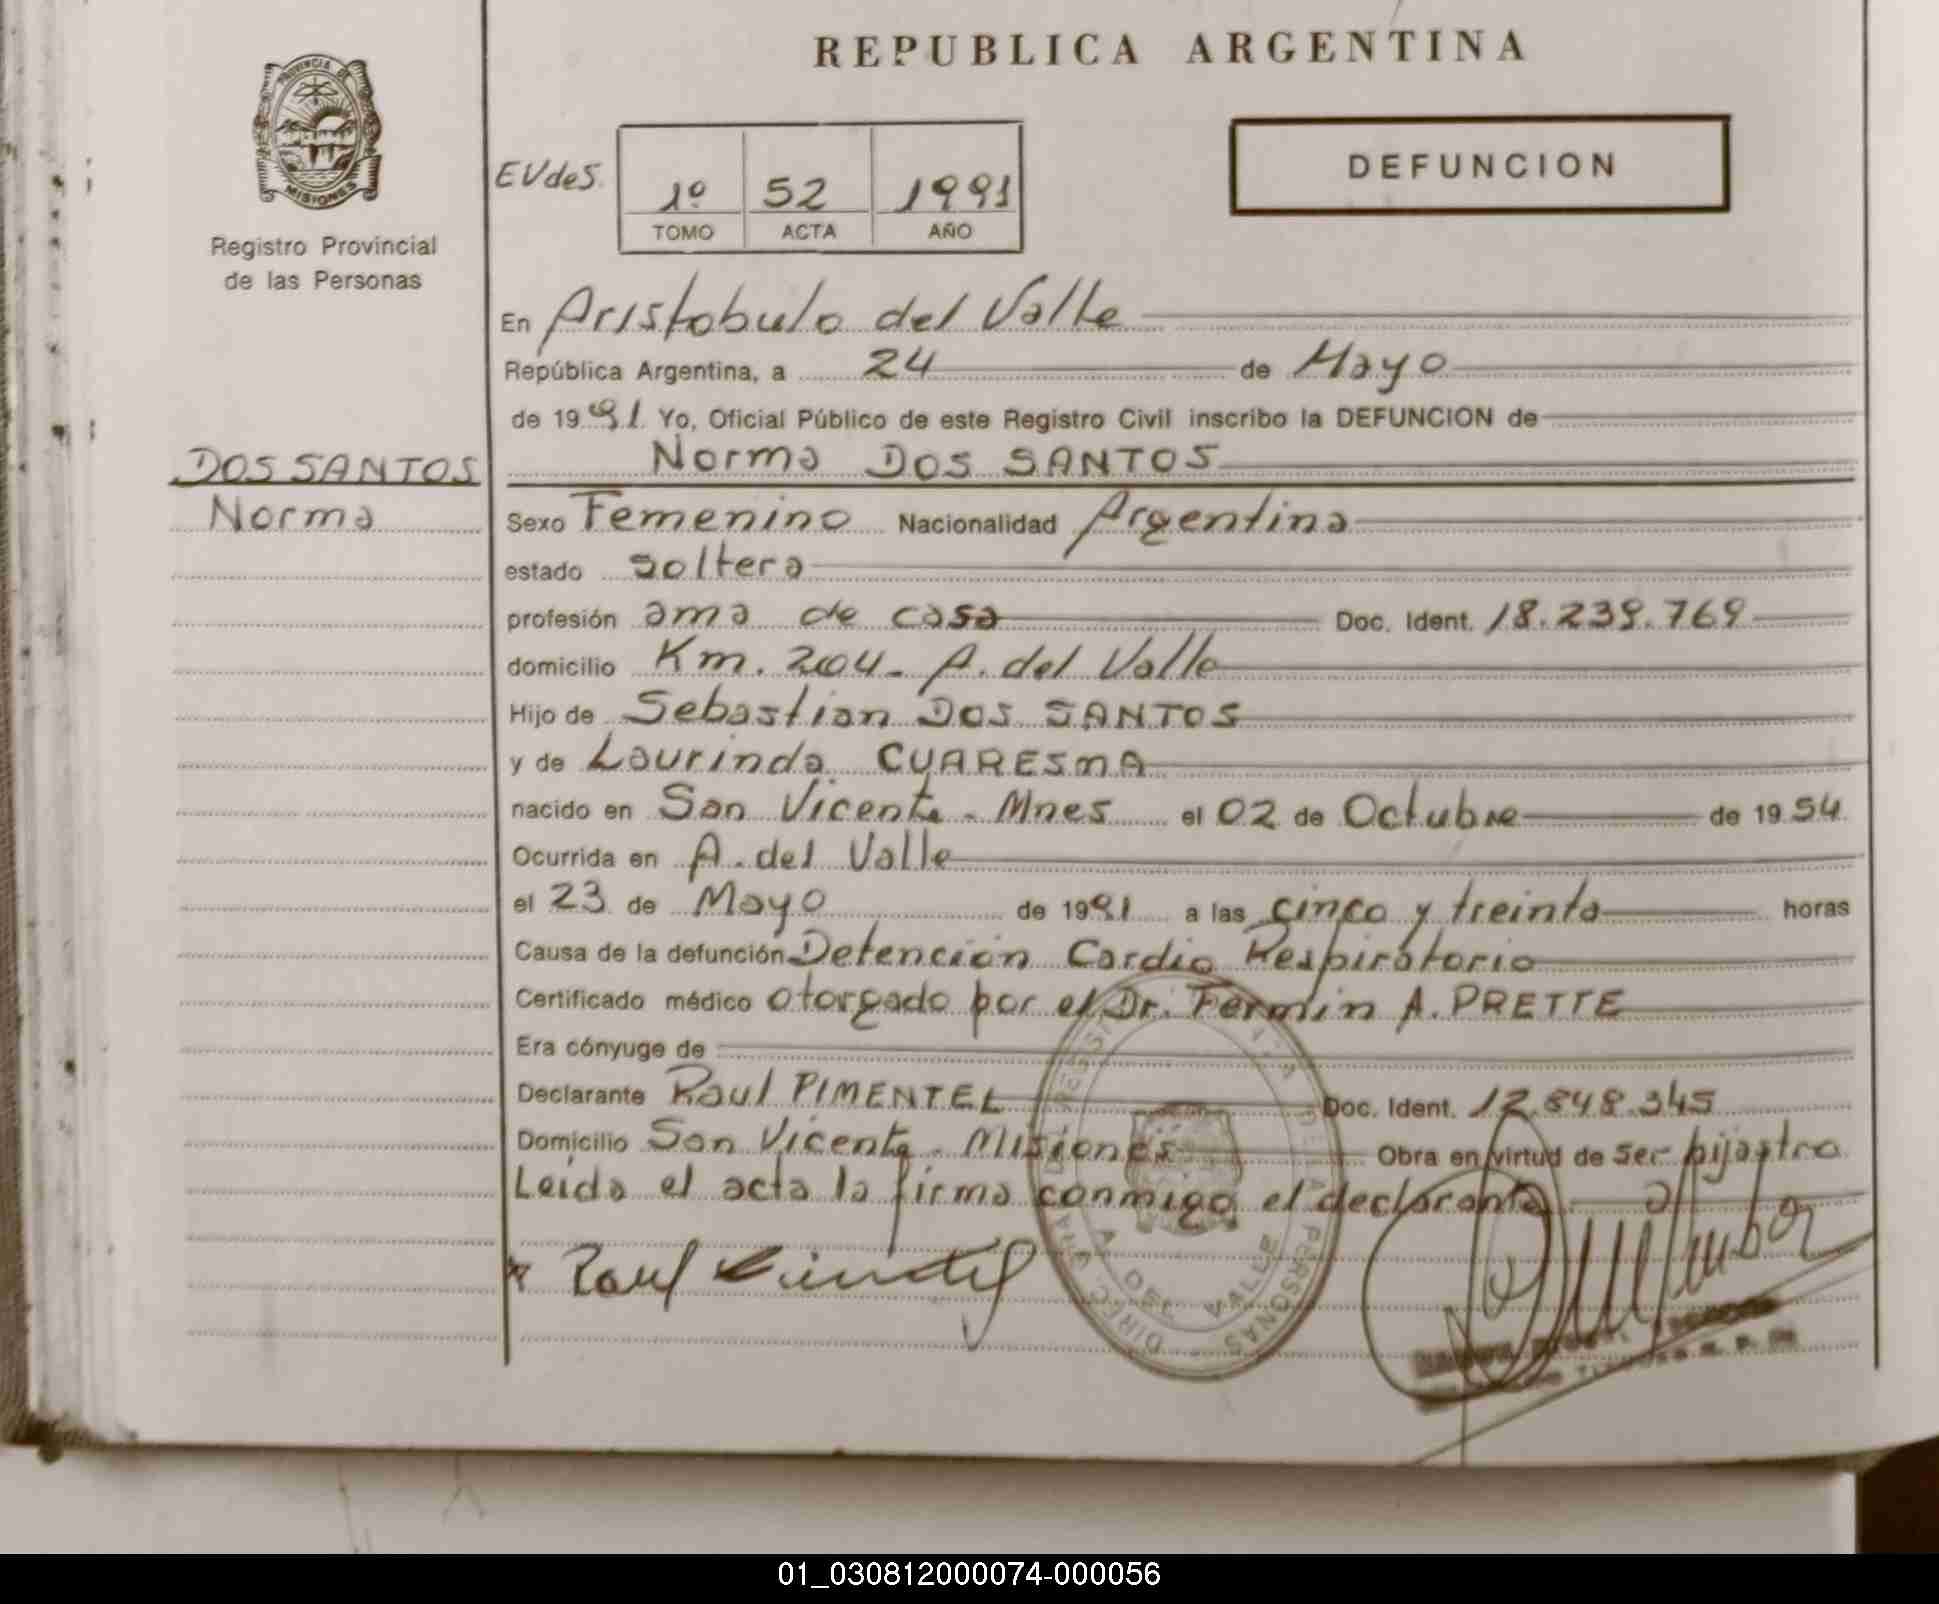 REPUBLICA ARGENTINA
PROVINCIA DE
MISIONES
Registro Provincial
de las Personas
DEFUNCION
EVdeS.
1º 52 1991
TOMO ACTA AÑO
En Aristobulo del Valle
República Argentina, a 24 de Mayo
de 1991. Yo, Oficial Público de este Registro Civil inscribo la DEFUNCION de
DOS SANTOS
Norma
Norma DOS SANTOS
Sexo Femenino Nacionalidad Argentina
estado soltera
profesión ama de casa Doc. Ident. 18.239.769
domicilio Km. 204 - A. del Valle
Hijo de Sebastian DOS SANTOS
y de Laurinda CUARESMA
nacido en San Vicente - Mnes el 02 de Octubre de 1954
Ocurrida en A. del Valle
el 23 de Mayo de 1991 a las cinco y treinta horas
Causa de la defunción Detención Cardio Respiratorio
Certificado médico otorgado por el Dr. Fermin A. PRETTE
Era cónyuge de
Declarante Raul PIMENTEL Doc. Ident. 12.848.345
Domicilio San Vicente - Misiones Obra en virtud de ser hijastro
Leida el acta la firma conmigo el declarante
Raul Pimentel
A DEL VALLE
PERSONAS
01_030812000074-000056